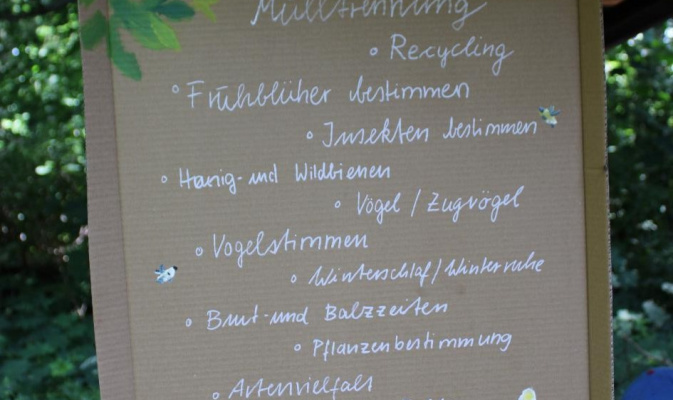 Mülltrennung
° Recycling
° Frühblüher bestimmen
° Insekten bestimmen
° Honig- und Wildbienen
° Vögel / Zugvögel
° Vogelstimmen
° Winterschlaf/Winterruhe
° Brut- und Balzzeiten
° Pflanzenbestimmung
° Artenvielfalt